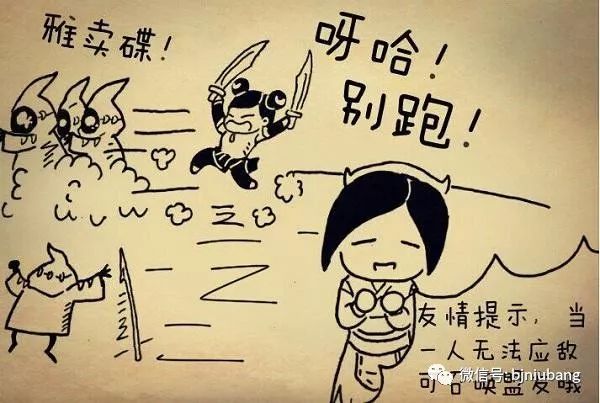 雅卖碟！
呀哈！
别跑！
友情提示，当
一人无法应敌
可召唤盟友哦
微信号: bjniubang